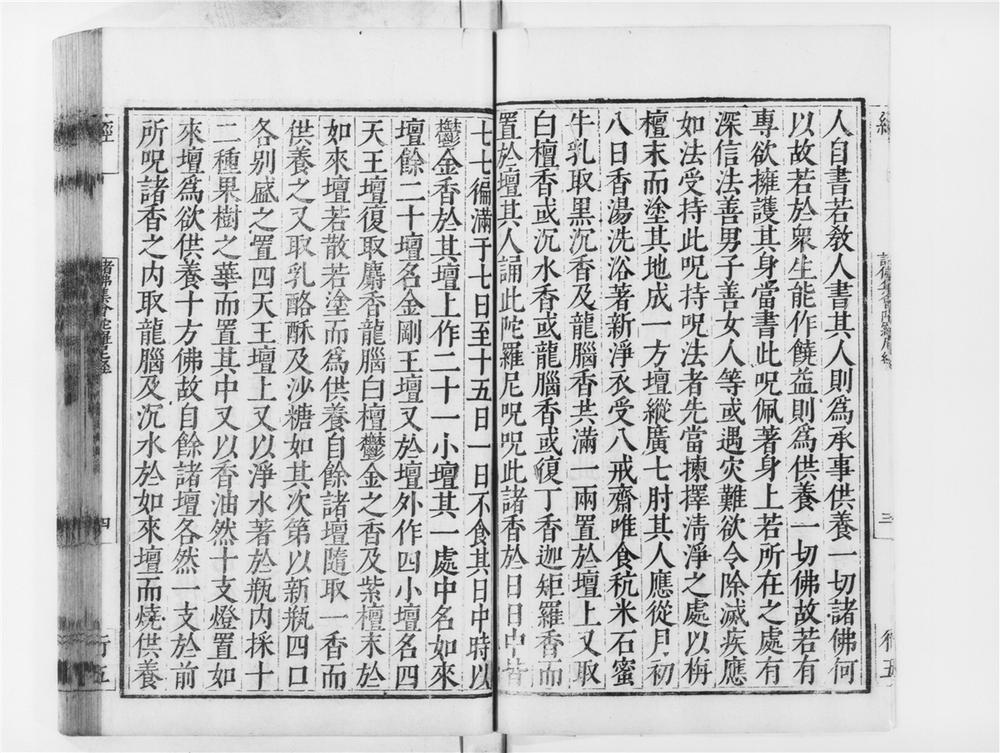 人自書若敎人書其人則爲承事供養一切諸佛何
以故若於衆生能作饒益則爲供養一切佛故若有
專欲擁護其身當書此呪佩著身上若所在之處有
深信法善男子善女人等或遇灾難欲令除滅疾應
如法受持此呪持呪法者先當揀擇淸淨之處以栴
檀末而塗其地成一方壇縱廣七肘其人應從月初
八日香湯洗浴著新淨衣受八戒齋唯食秔米石蜜
牛乳取黑沉香及龍腦香共滿一兩置於壇上又取
白檀香或沉水香或龍腦香或復丁香迦矩羅香而
置於壇其人誦此陀羅尼呪呪此諸香於日日中皆
七七徧滿于七日至十五日一日不食其日中時以
鬱金香於其壇上作二十一小壇其一處中名如來
壇餘二十壇名金剛王壇又於壇外作四小壇名四
天王壇復取麝香龍腦白檀鬱金之香及紫檀末於
如來壇若散若塗而爲供養自餘諸壇隨取一香而
供養之又取乳酪酥及沙糖如其次第以新瓶四口
各別盛之置四天王壇上又以淨水著於瓶內採十
二種果樹之華而置其中又以香油然十支燈置如
來壇爲欲供養十方佛故自餘諸壇各然一支於前
所呪諸香之內取龍腦及沉水於如來壇而燒供養
經
諸佛集會陀羅尼經
四
行五